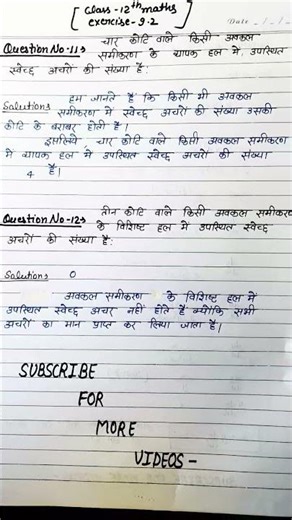 [ Class - 12th maths
exercise - 9.2
Date _ / _ / _
Question No-11:- चार कोटि वाले किसी अवकल
समीकरण के व्यापक हल में उपस्थित
स्वेच्छ अचरों की संख्या है:
Solution:- हम जानते हैं कि किसी भी अवकल
समीकरण में स्वेच्छ अचरों की संख्या उसकी
कोटि के बराबर होती है।
इसलिये, चार कोटि वाले किसी अवकल समीकरण
में व्यापक हल में उपस्थित स्वेच्छ अचरों की संख्या
4 है।
Question No-12:- तीन कोटि वाले किसी अवकल समीकरण
के विशिष्ट हल में उपस्थित स्वेच्छ
अचरों की संख्या है:
Solution:- 0
अवकल समीकरण के विशिष्ट हल में
उपस्थित स्वेच्छ अचर नहीं होते हैं क्योंकि सभी
अचरों का मान प्राप्त कर लिया जाता है।
SUBSCRIBE
FOR
MORE
VIDEOS -